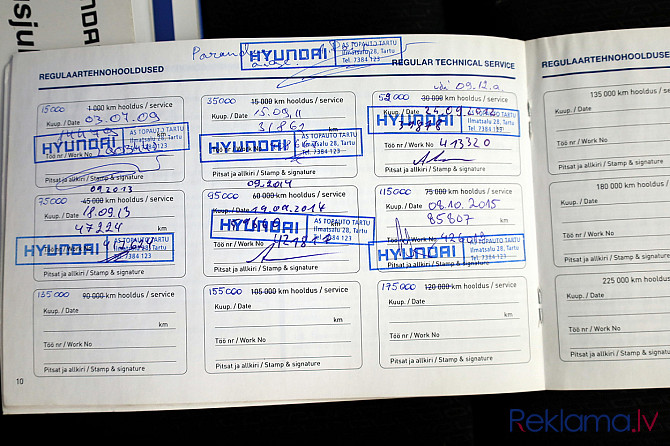 REGULAARTEHNOHOOLDUSED
HYUNDAI
AS TOPAUTO TARTU
Ilmatsalu 28, Tartu
Tel. 7384 123
REGULAR TECHNICAL SERVICE
REGULAARTEHNO
15000
1 000 km hooldus / service
Kuup. / Date 03.07.09
km
HYUNDAI
AS TOPAUTO TARTU
Ilmatsalu 28, Tartu
Tel. 7384 123
Töö nr / Work No
Pitsat ja allkiri / Stamp & signature
35000
15 000 km hooldus / service
Kuup. / Date 15.09.11
31861
km
HYUNDAI
AS TOPAUTO TARTU
Ilmatsalu 28, Tartu
Tel. 7384 123
Töö nr / Work No
Pitsat ja allkiri / Stamp & signature
09.12.a
30 000 km hooldus / service
Kuup. / Date
HYUNDAI
AS TOPAUTO TARTU
Ilmatsalu 28, Tartu
Tel. 7384 123
Töö nr / Work No 413320
Pitsat ja allkiri / Stamp & signature
135 000 km
Kuup. / Date
Töö nr / Work No
Pitsat ja allkiri / Stamp & si
09.2013
75000
45 000 km hooldus / service
Kuup. / Date 18.09.13
47224
km
HYUNDAI
AS TOPAUTO TARTU
Ilmatsalu 28, Tartu
Tel. 7384 123
Töö nr / Work No
Pitsat ja allkiri / Stamp & signature
09.2014
95000
60 000 km hooldus / service
Kuup. / Date
HYUNDAI
AS TOPAUTO TARTU
Ilmatsalu 28, Tartu
Tel. 7384 123
Töö nr / Work No
Pitsat ja allkiri / Stamp & signature
115000
75 000 km hooldus / service
Kuup. / Date 08.10.2015
85807
km
HYUNDAI
AS TOPAUTO TARTU
Ilmatsalu 28, Tartu
Tel. 7384 123
Töö nr / Work No
Pitsat ja allkiri / Stamp & signature
180 000 km
Kuup. / Date
Töö nr / Work No
Pitsat ja allkiri / Stamp &
135000
90 000 km hooldus / service
Kuup. / Date
km
Töö nr / Work No
Pitsat ja allkiri / Stamp & signature
155000
105 000 km hooldus / service
Kuup. / Date
km
Töö nr / Work No
Pitsat ja allkiri / Stamp & signature
175000
120 000 km hooldus / service
Kuup. / Date
km
Töö nr / Work No
Pitsat ja allkiri / Stamp & signature
225 000 km
Kuup. / Date
Töö nr / Work No
Pitsat ja allkiri / Stamp
10
Reklama.lv